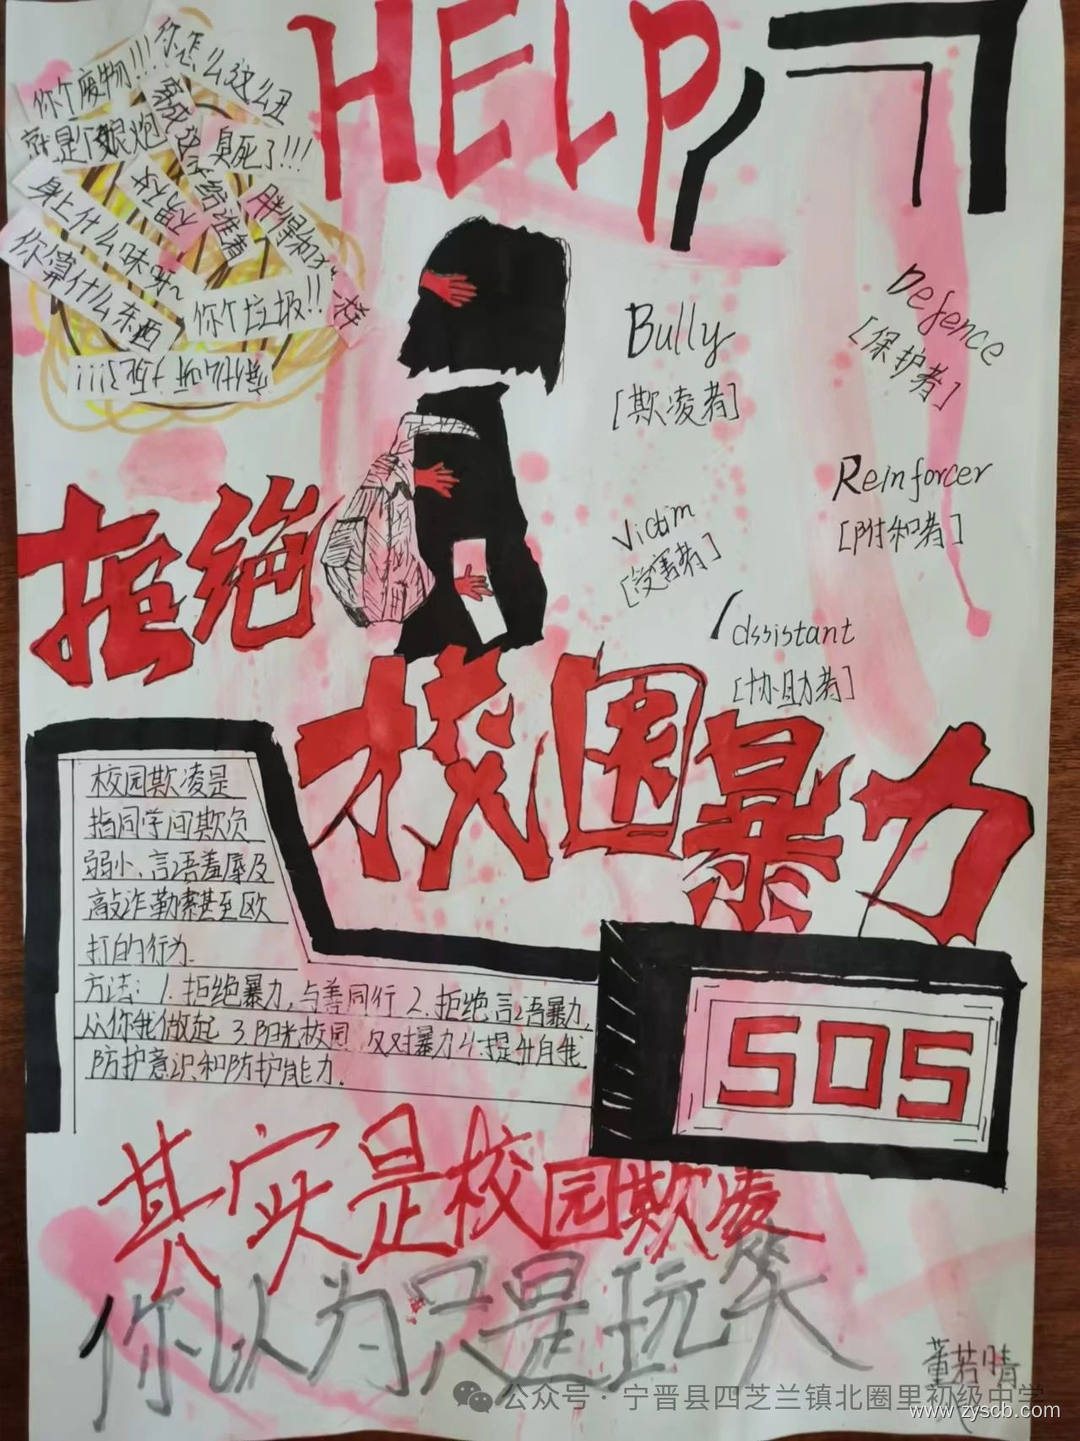 HELP
你个废物!!!
你怎么这么丑
臭死了!!!
身上什么味呀~
你算什么东西
你个垃圾!!
一样
Bully
[欺凌者]
Defence
[保护者]
Reinforcer
[附和者]
Victim
[受害者]
Assistant
[协助者]
拒绝
校园暴力
校园欺凌是
指同学间欺负
弱小、言语羞辱及
敲诈勒索甚至欧
打的行为.
方法: 1. 拒绝暴力,与善同行 2. 拒绝言语暴力,
从你我做起 3.阳光校园 反对暴力 4.提升自我
防护意识和防护能力.
SOS
其实是校园欺凌
你认为只是玩笑
董若晴
公众号·宁晋县四芝兰镇北圈里初级中学
www.zyscb.com